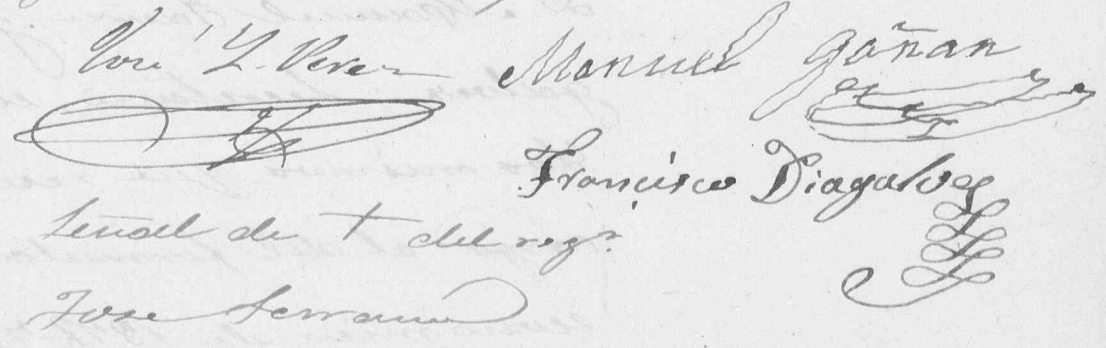 José Y. Perez Manuel Gañan
Francisco Diagalves
Señal de + del regr.
Jose Serrano